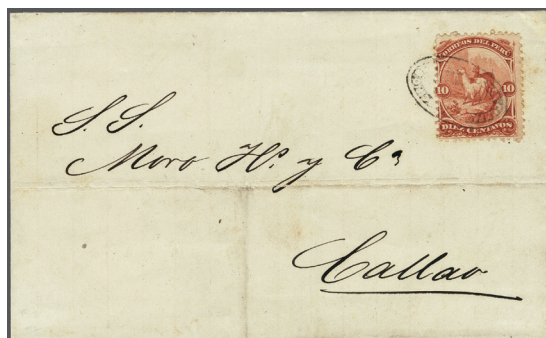 CORREOS DEL PERU
10 10
DIEZ CENTAVOS
S. S.
Moro Hº y Cª
Callao